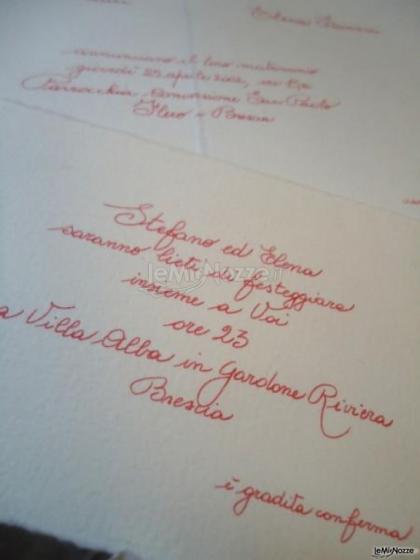 Elena
annunciano il loro matrimonio
giovedì 25 aprile
Parrocchia Conversione San Paolo
Flero - Brescia
Stefano ed Elena
saranno lieti di festeggiare
insieme a Voi
ore 23
a Villa Alba in Gardone Riviera
Brescia
è gradita conferma
leMieNozze.it
LeMieNozze